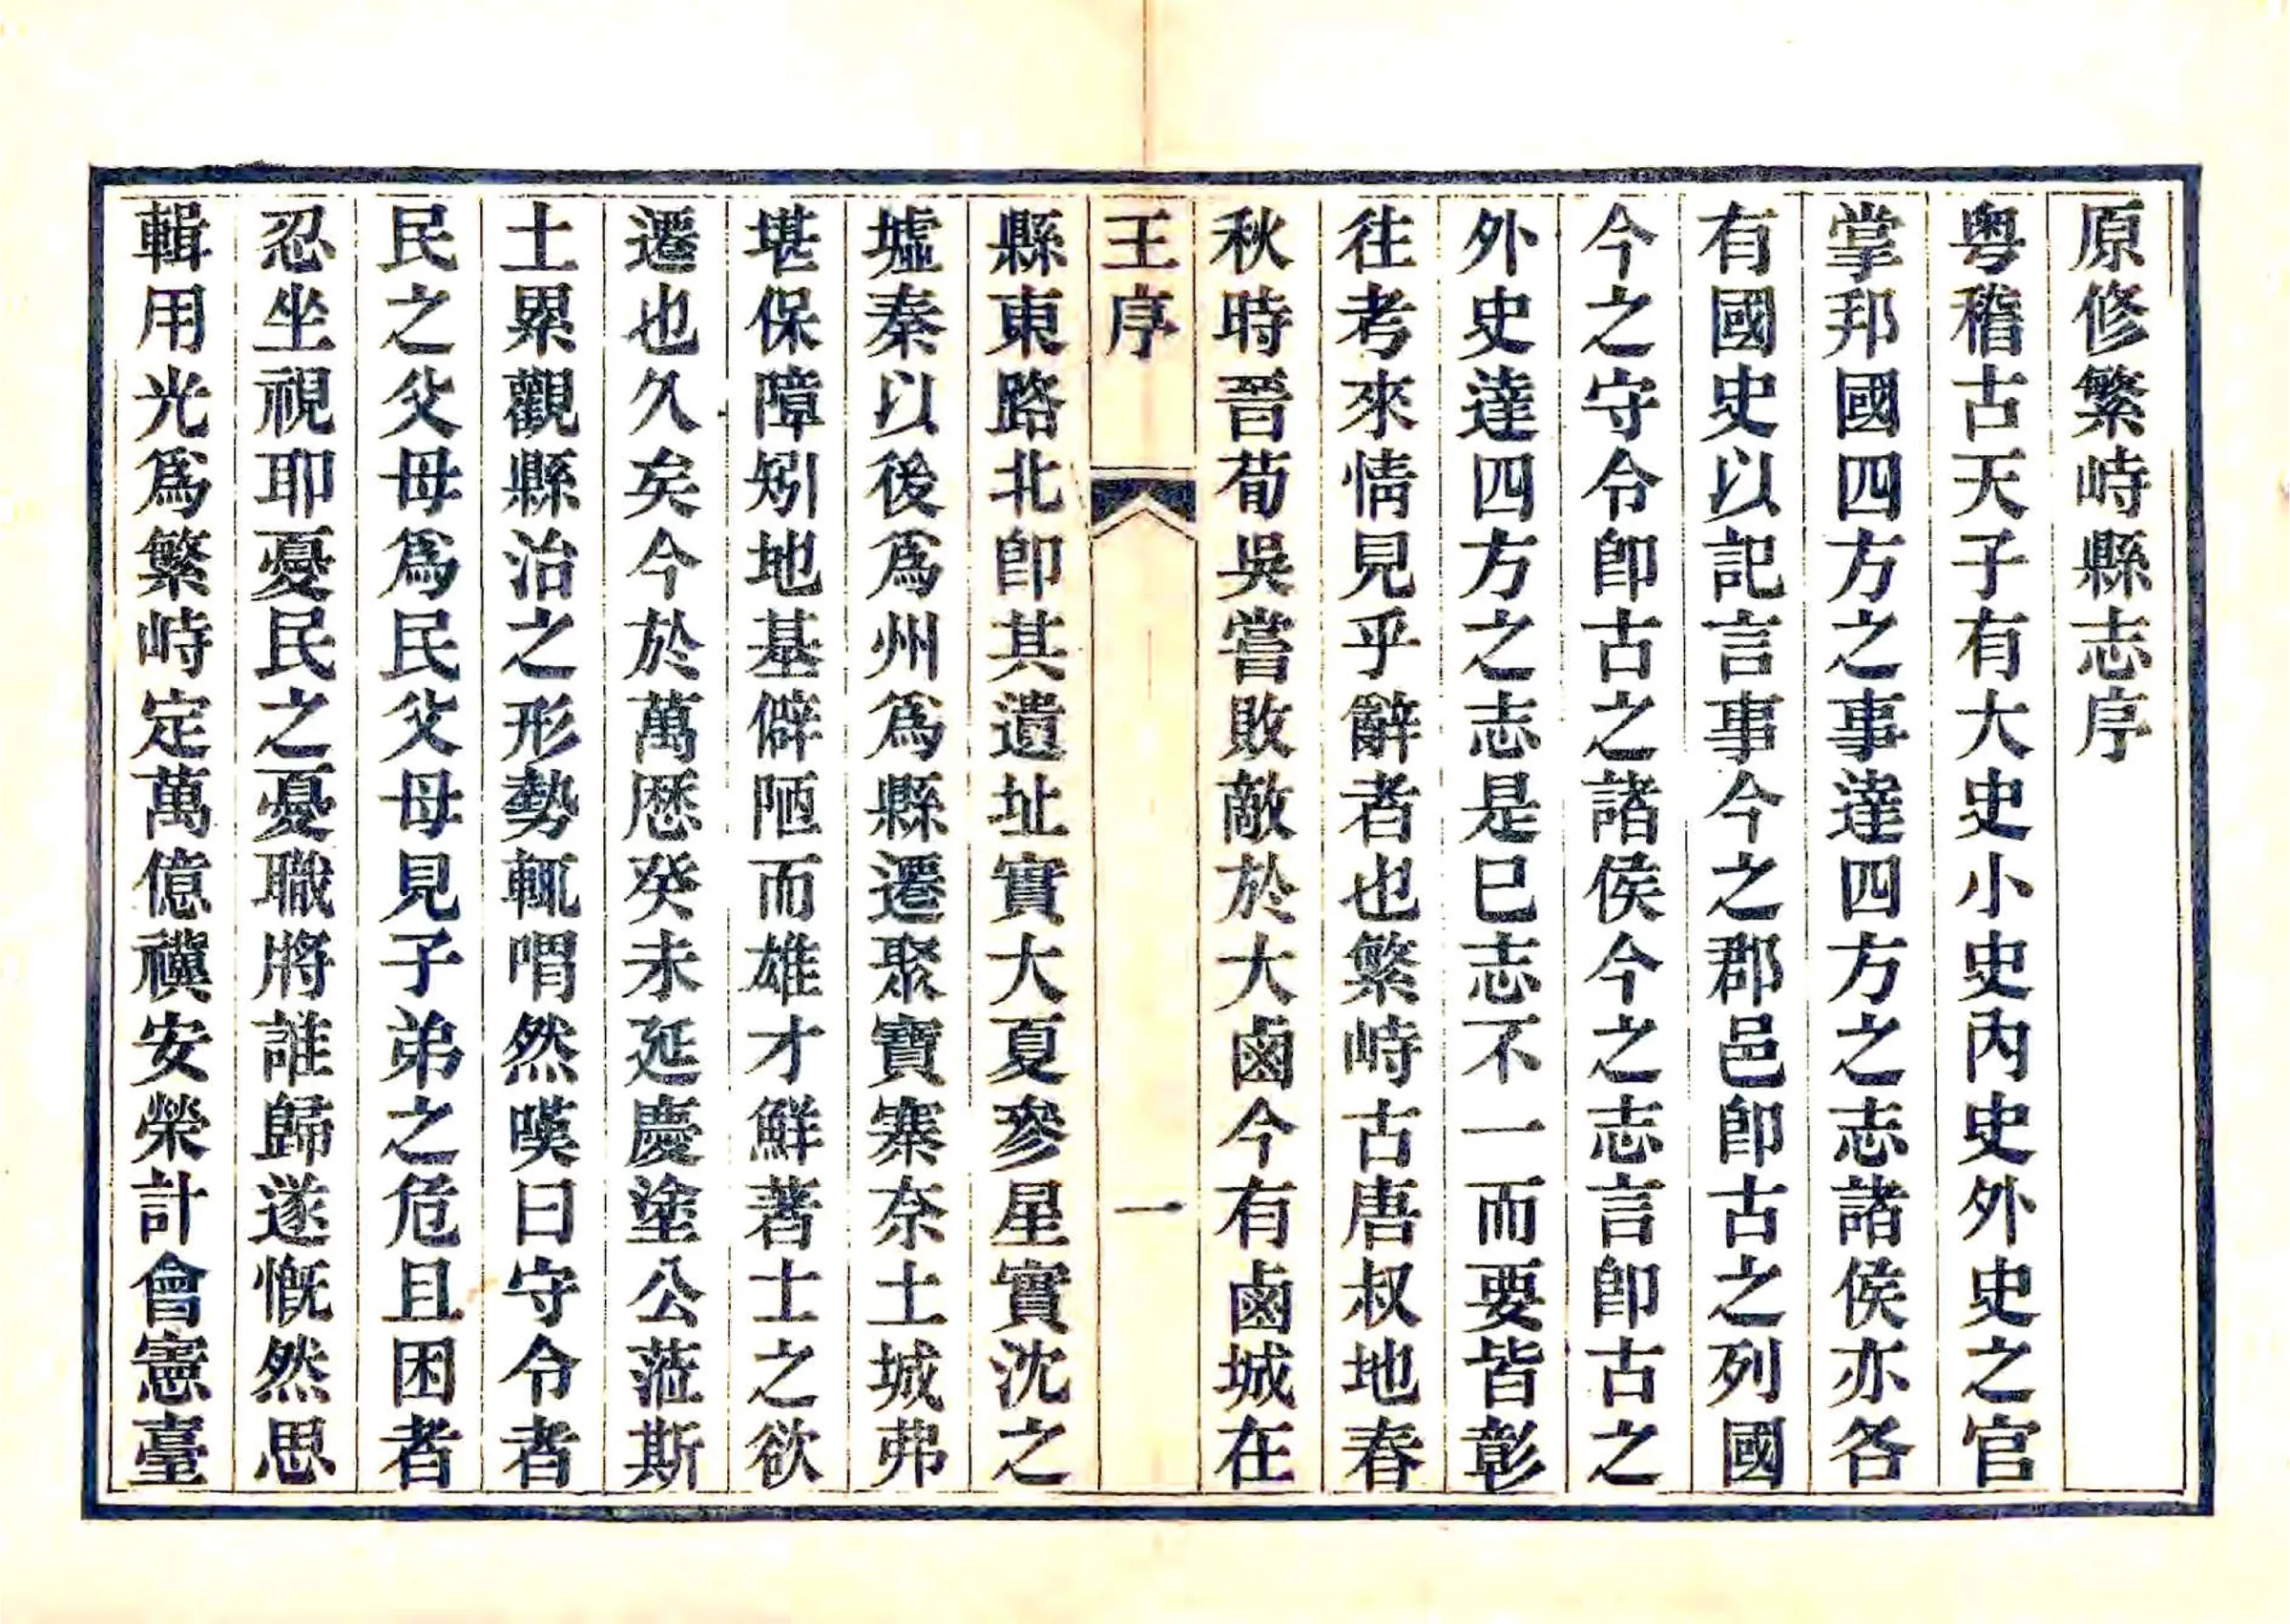 原修繁峙縣志序
粤稽古天子有大史小史內史外史之官
掌邦國四方之事達四方之志諸侯亦各
有國史以記言事今之郡邑卽古之列國
今之守令卽古之諸侯今之志言卽古之
外史達四方之志是巳志不一而要皆彰
往考來情見乎辭者也繁峙古唐叔地春
秋時晉荀吳嘗敗敵於大鹵今有鹵城在
王序
一
縣東路北卽其遺址實大夏參星實沈之
墟秦以後爲州爲縣遷聚寶寨奈土城弗
堪保障矧地基僻陋而雄才鮮著士之欲
遷也久矣今於萬厯癸未延慶塗公蒞斯
土累觀縣治之形勢輒喟然嘆曰守令者
民之父母爲民父母見子弟之危且困者
忍坐視耶憂民之憂職將誰歸遂慨然思
輯用光爲繁峙定萬億禩安榮計會憲臺